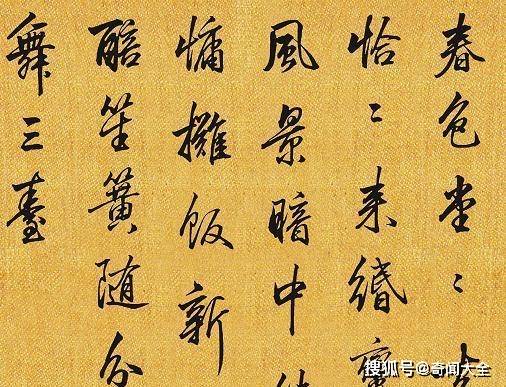 春色堂〻
恰〻来緡
風景暗中
慵攤飯新
醅笙簧随分
舞三臺
搜狐号@奇闻大全